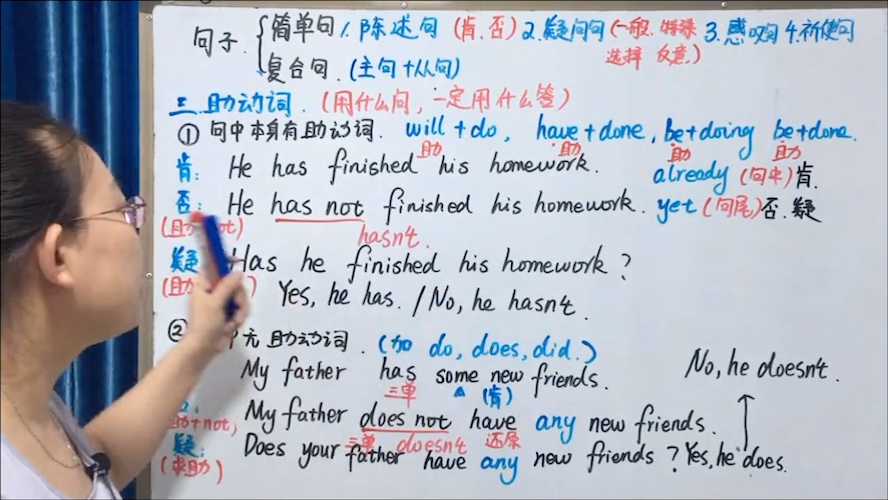 句子. 简单句 1. 陈述句 (肯.否) 2.疑问句 (一般. 特殊 选择 反意.) 3.感叹句 4.祈使句
复合句. (主句+从句)
三.助动词. (用什么问,一定用什么答)
① 句中本身有助动词. will+do, have+done, be+doing be+done.
助 助 助 助
肯: He has finished his homework. already (句中) 肯.
否: He has not finished his homework. yet (句尾) 否.疑
hasn't.
疑 Has he finished his homework ?
Yes, he has. / No, he hasn't.
② 无 助动词. (加 do, does, did.)
My father has some new friends. No, he doesn't.
三单 (肯)
My father does not have any new friends.
+not, 三单 doesn't 还原
疑: Does your father have any new friends ? Yes, he does.
(求助)